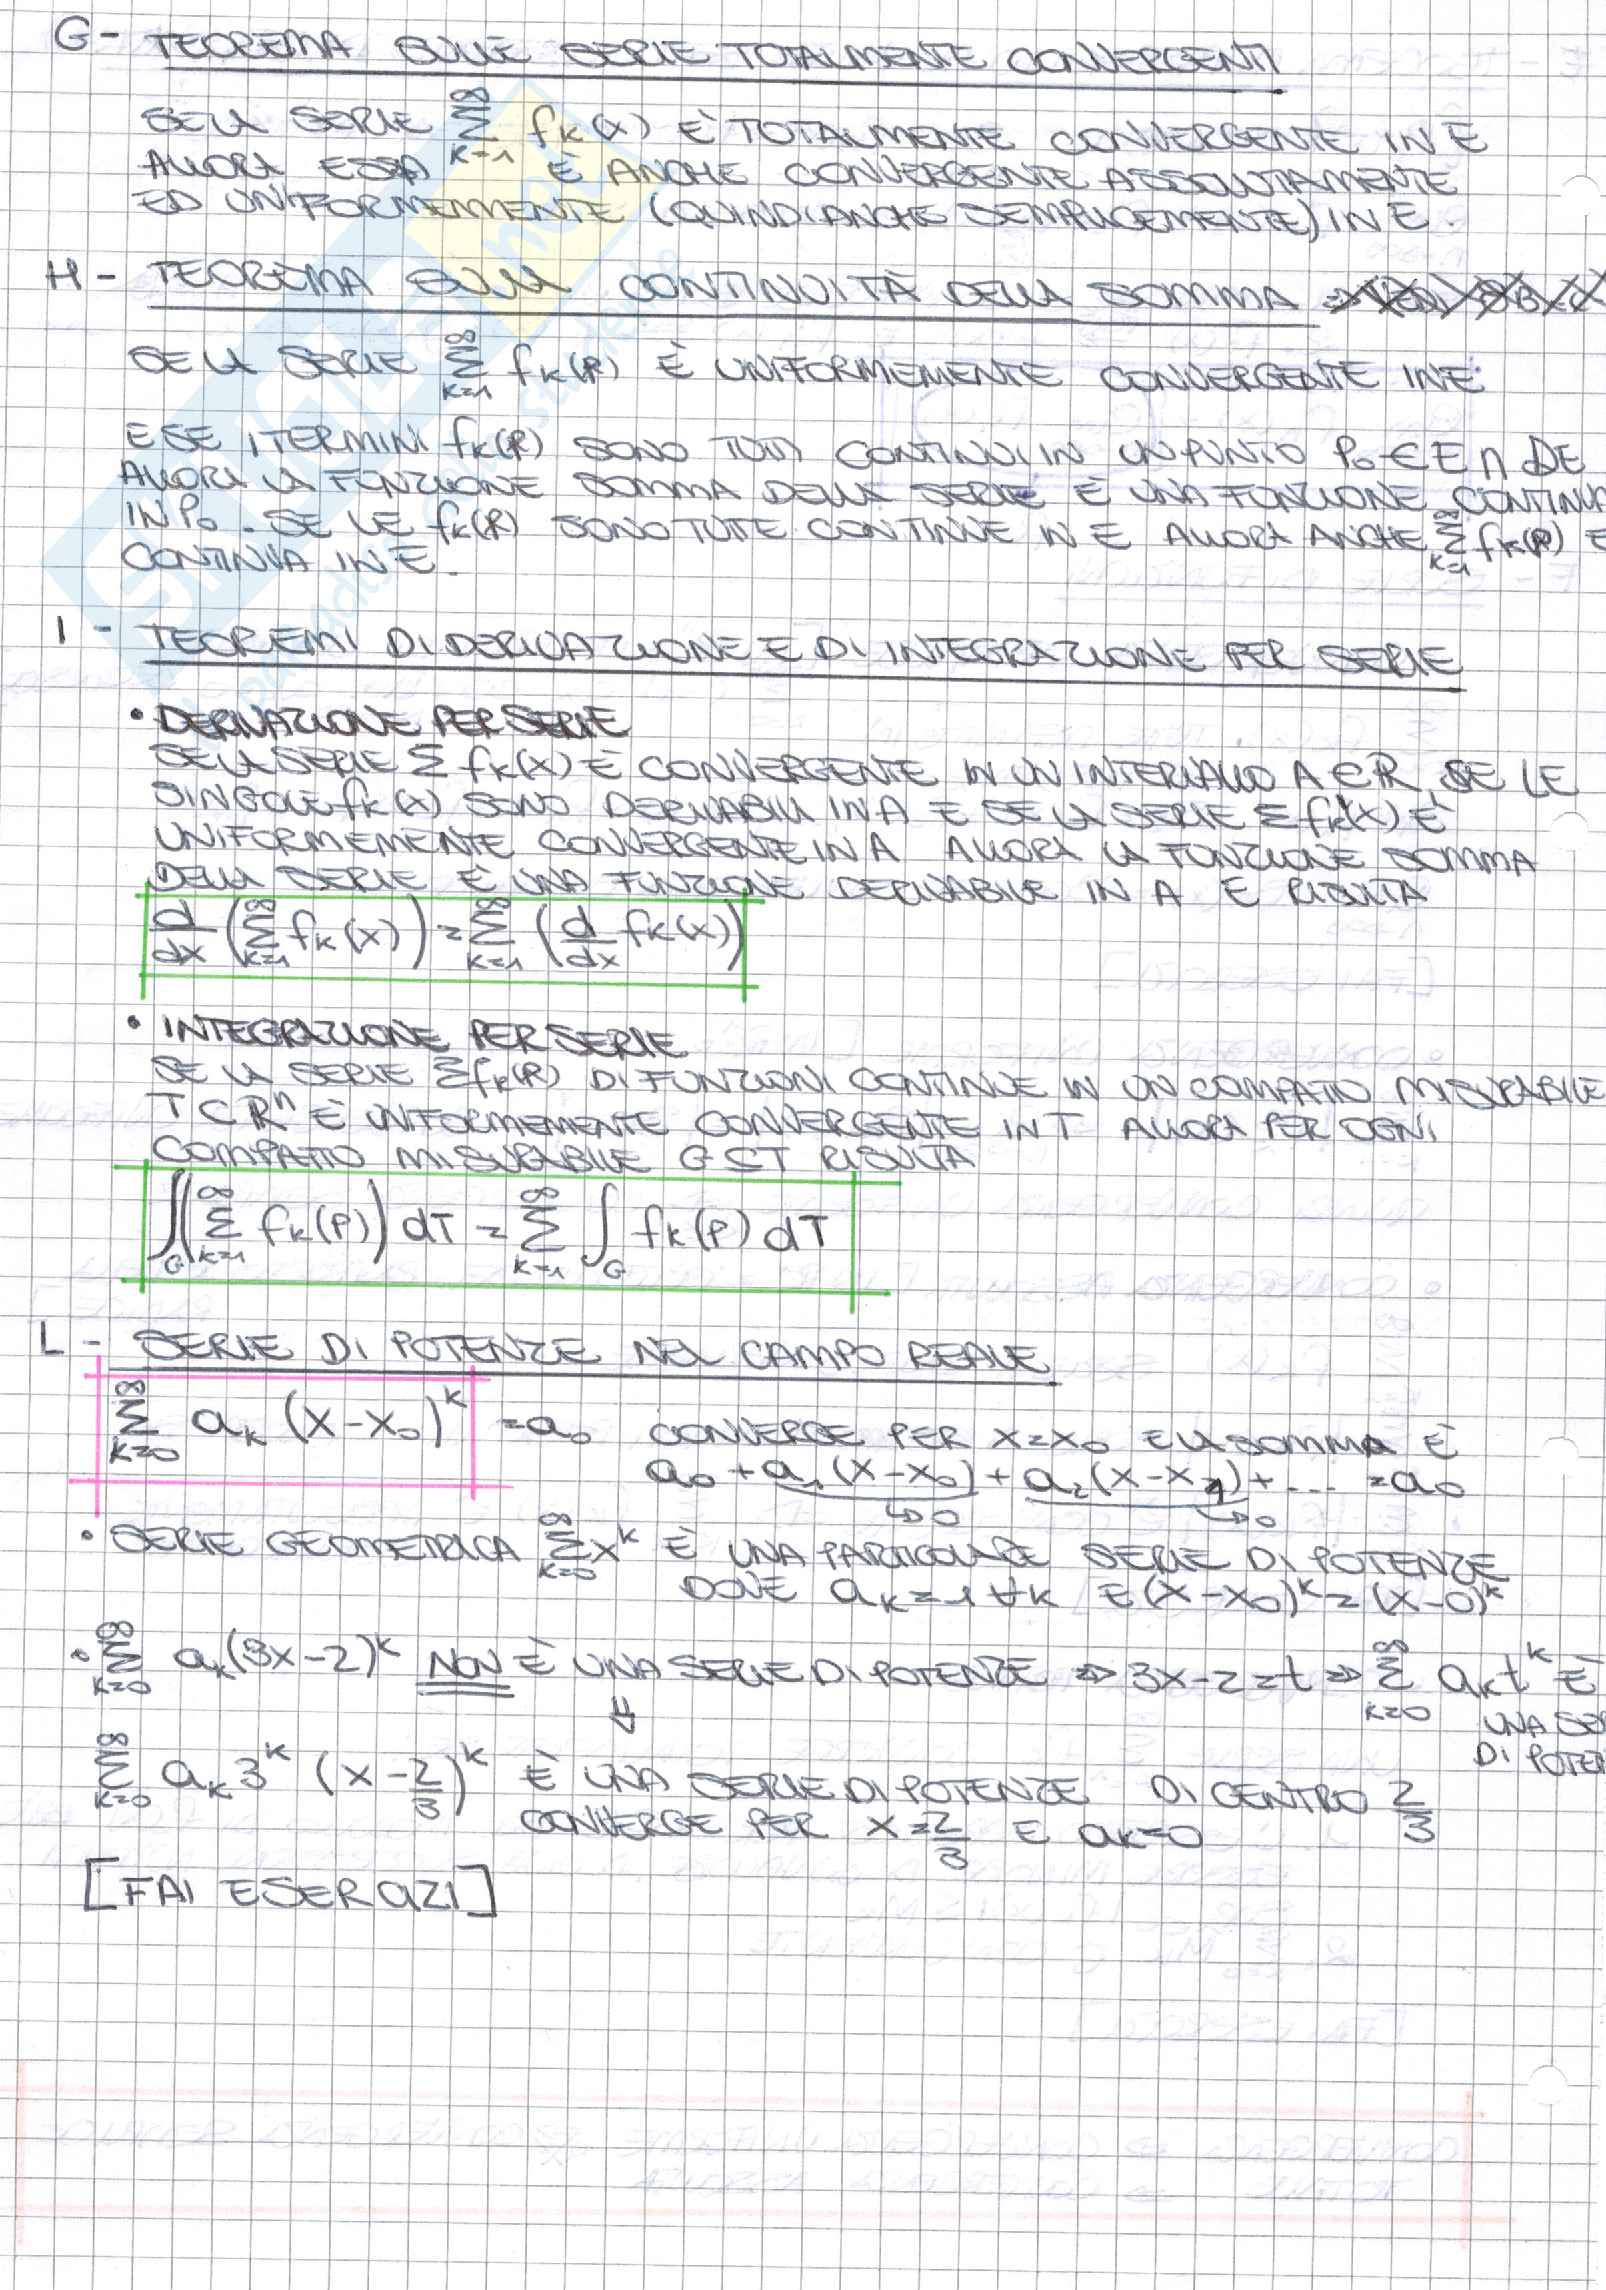 G - TEOREMA SULLE SERIE TOTALMENTE CONVERGENTI
SE LA SERIE ∑_{k=1}^{∞} fk(x) È TOTALMENTE CONVERGENTE IN E
ALLORA ESSA È ANCHE CONVERGENTE ASSOLUTAMENTE
ED UNIFORMEMENTE (QUINDI ANCHE SEMPLICEMENTE) IN E.
H - TEOREMA SULLA CONTINUITÀ DELLA SOMMA
SE LA SERIE ∑_{k=1}^{∞} fk(P) È UNIFORMEMENTE CONVERGENTE IN E
E SE I TERMINI fk(P) SONO TUTTI CONTINUI IN UN PUNTO P₀ ∈ E ∩ DE
ALLORA LA FUNZIONE SOMMA DELLA SERIE È UNA FUNZIONE CONTINUA
IN P₀. SE LE fk(P) SONO TUTTE CONTINUE IN E ALLORA ANCHE ∑_{k=1}^{∞} fk(P) È
CONTINUA IN E.
I - TEOREMI DI DERIVAZIONE E DI INTEGRAZIONE PER SERIE
• DERIVAZIONE PER SERIE
SE LA SERIE ∑ fk(x) È CONVERGENTE IN UN INTERVALLO A ∈ R, SE LE
SINGOLE fk(x) SONO DERIVABILI IN A E SE LA SERIE ∑ fk'(x) È
UNIFORMEMENTE CONVERGENTE IN A ALLORA LA FUNZIONE SOMMA
DELLA SERIE È UNA FUNZIONE DERIVABILE IN A E RISULTA
d/dx (∑_{k=1}^{∞} fk(x)) = ∑_{k=1}^{∞} (d/dx fk(x))
• INTEGRAZIONE PER SERIE
SE LA SERIE ∑ fk(P) DI FUNZIONI CONTINUE IN UN COMPATTO MISURABILE
T ⊂ Rⁿ È UNIFORMEMENTE CONVERGENTE IN T ALLORA PER OGNI
COMPATTO MISURABILE G ⊆ T RISULTA
∫_G (∑_{k=1}^{∞} fk(P)) dT = ∑_{k=1}^{∞} ∫_G fk(P) dT
L - SERIE DI POTENZE NEL CAMPO REALE
∑_{k=0}^{∞} ak (x-x₀)^k = a₀ CONVERGE PER x=x₀ E LA SOMMA È
a₀ + a₁(x-x₀) + a₂(x-x₁) + ... = a₀
↳0 ↳0
• SERIE GEOMETRICA ∑_{k=0}^{∞} x^k È UNA PARTICOLARE SERIE DI POTENZE
DOVE ak=1 ∀k E (x-x₀)^k = (x-0)^k
• ∑_{k=0}^{∞} ak(3x-2)^k NON È UNA SERIE DI POTENZE ⇒ 3x-2=t ⇒ ∑_{k=0}^{∞} ak t^k È
UNA SE
DI POTE
⇓
∑_{k=0}^{∞} ak 3^k (x - 2/3)^k È UNA SERIE DI POTENZE DI CENTRO 2/3
CONVERGE PER x=2/3 E ak=0
[FAI ESERCIZI]